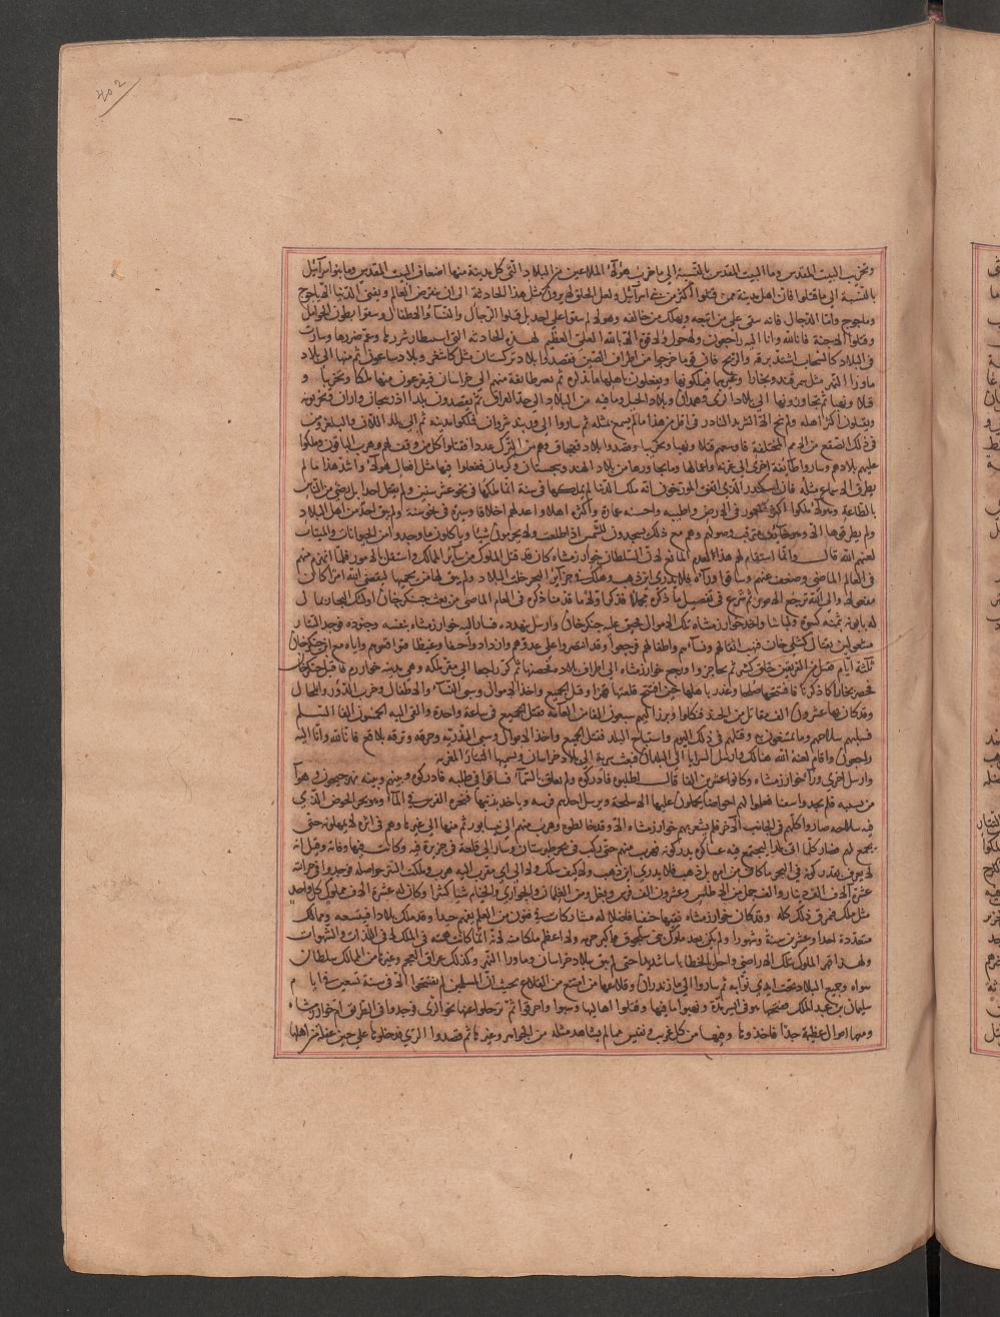 وتخريب البيت المقدس وما البيت المقدس بالنسبة الى ما خرب هؤلاء الملاعين من البلاد التى كل مدينة منها اضعاف البيت المقدس وما بنو اسرآئيل
بالنسبة الى ما قتلوا فان اهل مدينة ممن قتلوا اكثر من بنى اسرآئيل ولعل الخلق لا يرون مثل هذا الحادثة الى ان ينقرض العالم وتفنى الدنيا الا ياجوج
وماجوج واما الدجال فانه يبقى على من اتبعه ويهلك من خالفه وهولاء لم يبقوا على احد بل قتلوا الرجال والنسآء والاطفال وشقوا بطون الحوامل
وقتلوا الاجنة فانا لله وانا اليه راجعون ولا حول ولا قوة الا بالله العلى العظيم لهذه الحادثة التى استطار شررها وعم ضررها وسارت
فى البلاد كالسحاب استدبرته الريح فان قوما خرجوا من اطراف الصين فقصدوا بلاد تركستان مثل كاشغر وبلاد ساغون ثم منها الى بلاد
ماورا النهر مثل سمرقند وبخارا وغيرهما فيملكونها ويفعلون باهلها ما نذكره ثم تعبر طائفة منهم الى خراسان فيفرغون منها ملكا وتخريبا و
قتلا ونهبا ثم يجاوزونها الى بلاد الرى وهمدان وبلاد الجبل وما فيه من البلاد الى حد العراق ثم يقصدون بلاد اذربيجان واران فيخربونه
ويقتلون اكثر اهله ولم ينج الا الشريد النادر فى اقل من هذا ما لم يسمع مثله ثم ساروا الى دربند شروان فملكوا مدينة ثم الى بلاد اللان
فى ذلك الصقع من الامم المختلفة فاوسعهم قتلا ونهبا وتخريبا وقصدوا بلاد قفجاق وهم من الترك عددا فقتلوا كل من وقف لهم وهرب الباقون وملكوا
عليهم بلادهم وساروا طآئفة اخرى الى غزنة واعمالها وما يجاورها من بلاد الهند وسجستان وكرمان ففعلوا فيها مثل افعال هؤلاء واشد هذا ما لم
يطرق الاسماع مثله فان الاسكندر الذى اتفق المورخون انه ملك الدنيا لم يملكها فى سنة انما ملكها فى نحو عشر سنين ولم يقتل احدا بل رضى من الناس
بالطاعة وهؤلاء ملكوا اكثر المعمور فى الارض واطيبه واحسنه عمارة واكثره اهلا واعدلهم اخلاقا وسيرة فى نحو سنة ولم يبق احد من اهل البلاد
ولم يطرقوها الا وهو خائف يترقب وصولهم وهم مع ذلك يسجدون للشمس اذا طلعت ولا يحرمون شيئا وياكلون ما وجدوا من الحيوانات والميتات
لعنهم الله قال وانما استقام لهم هذا الامر لعدم المانع لان السلطان خوارزمشاه كان قد قتل الملوك من سآئر الممالك واستقل بالامور فلما انهزم منهم
فى العام الماضى وضعف عنهم وساقوا ورآءه فلا يدرى اين ذهب وهلك فى جزآئر البحر خلت البلاد ولم يبق لها من يحميها ليقضى الله امرا كان
مفعولا والى الله ترجع الامور ثم شرع فى تفصيل ما ذكره مجملا فذكر اولا ما قدمنا ذكره فى العام الماضى من بعث جنكزخان اولئك التجار بما ل
له ياتونه بثمنه كسوة ولباسا واخذ خوارزمشاه تلك الاموال فحنق عليه جنكزخان وارسل يهدده فسار اليه خوارزمشاه بنفسه وجنوده فوجد التتار
مشغولين بقتال كشلى خان فنهب اثقالهم ونسآءهم واطفالهم فرجعوا وقد انتصروا على عدوهم وازدادوا حنقا وغيظا فتواقفوهم واياه مع ابن جنكزخان
ثلثة ايام فقتل من الفريقين خلق كثير ثم تحاجزوا ورجع خوارزمشاه الى اطراف بلاده فحصنها ثم كر راجعا الى مقر ملكه وهى مدينة خوارزم فاقبل جنكزخان
فحصر بخارا كما ذكرنا فافتتحها صلحا وغدر باهلها حتى افتتح قلعتها قهرا وقتل الجميع واخذ الاموال وسبى النسآء والاطفال وخرب الدور والمحال
وقد كان بها عشرون الف مقاتل من الجند فنكلوا فبرز اليهم سبعون الفا من العامة فقتل الجميع فى ساعة واحدة والقى اليه الخمسون الفا السلم
فسلبهم سلاحهم وما يمتنعون به وقتلهم فى ذلك اليوم واستباح البلد فقتل الجميع واخذ الاموال وسبى الذرية وحرقه وتركه بلاقع فانا لله وانا اليه
راجعون واقام لعنه الله هنالك وارسل السرايا الى البلدان فبعث سرية الى بلاد خراسان وتسميها التتار المغربة
وارسل اخرى ورآء خوارزمشاه وكانوا عشرين الفا قال اطلبوه فادركوه ولو تعلق بالسمآء فساقوا فى طلبه فادركوه وبينهم وبينه نهر جيحون وهو آمن
من بسببه فلم يجدوا سفنا فعملوا لهم احواضا يحملون عليها الاسلحة ويرسل احدهم فرسه وياخذ بذنبها فتجره الفرس فى المآء وهو يجر الحوض الذى
فيه سلاحه حتى صاروا كلهم فى الجانب الآخر فلم يشعر بهم خوارزمشاه الا وقد خالطوه وهرب منهم الى نيسابور ثم منها الى غيرها وهم فى اثره لا يمهلونه حتى
يجمع لهم فصار كلما اتى بلدا ليجتمع فيه عساكره يدركونه فهرب منهم حتى ركب فى بحر طبرستان وسار الى قلعة فى جزيرة فيه وكانت فيها وفاته وقيل انه
لا يعرف بعد ركوبه فى البحر ما كان من امره بل ذهب فلا يدرى اين ذهب ولا كيف سلك ولا الى اى مفر هرب وملكت التتر حواصله فوجدوا فى خزانته
عشرة آلاف الف دينار والف حمل من الاطلس وعشرون الف فرس وبغل ومن الغلمان والجوارى والخيام شيئا كثيرا وكان له عشرة الاف مملوك كل واحد
مثل ملك فتمزق ذلك كله وقد كان خوارزمشاه فقيها حنفيا فاضلا له مشاركات فى فنون من العلم يفهم جيدا وقد ملك بلادا متسعة وممالك
متعددة احدا وعشرين سنة وشهورا ولم يكن بعد ملوك بنى سلجوق مر اكبر حرمة ولا اعظم ملكا منه لانه انما كانت همته فى الملك لا فى اللذات والشهوات
ولهذا قهر الملوك بتلك الاراضى واحل بالخطا باسا شديدا حتى لم يبق ببلاد خراسان وماورا النهر وكذلك عراق العجم وغيرها من الممالك سلطان
سواه وجميع البلاد تحت ايدى نوابه ثم ساروا الى مازندران وقلاعها من امنع من القلاع بحيث ان المسلمين لم يفتتحوها الا فى سنة تسعين من ايام
سليمان بن عبد الملك ففتحها هولاء فى ايسر مدة ونهبوا ما فيها وقتلوا اهاليها وسبوا واحرقوا ثم ترحلوا عنها نحو الرى فوجدوا فى الطريق ام خوارزمشاه
ومعها اموال عظيمة جدا فاخذوها وفيها من كل غريب ونفيس مما لم يشاهد مثله من الجواهر وغيرها ثم قصدوا الرى فدخلوها على حين غفلة من اهلها